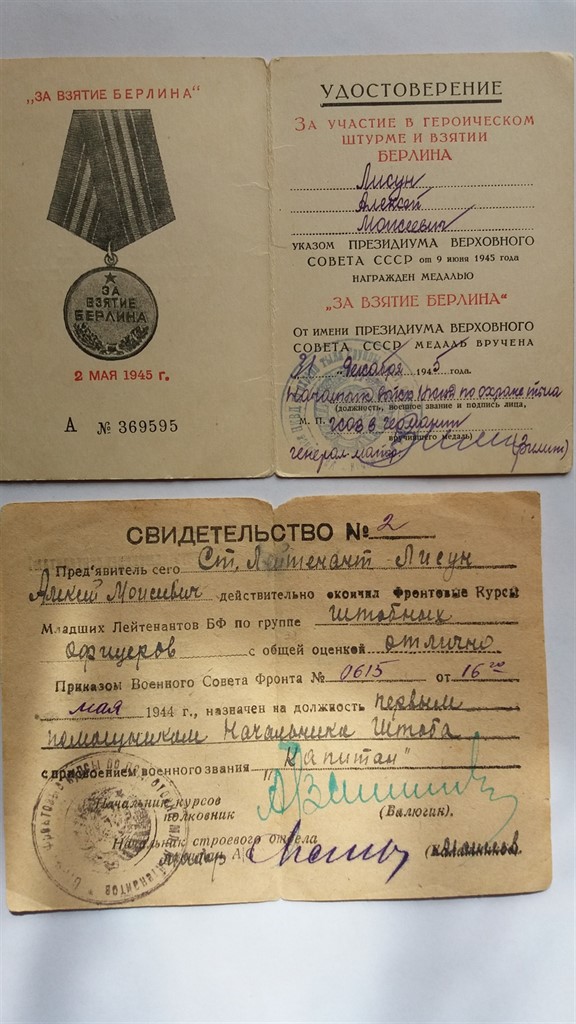 „ЗА ВЗЯТИЕ БЕРЛИНА"
ЗА
ВЗЯТИЕ
БЕРЛИНА
2 МАЯ 1945 г.
А № 369595
УДОСТОВЕРЕНИЕ
ЗА УЧАСТИЕ В ГЕРОИЧЕСКОМ
ШТУРМЕ И ВЗЯТИИ
БЕРЛИНА
Лисун
Алексей
Моисеевич
УКАЗОМ ПРЕЗИДИУМА ВЕРХОВНОГО
СОВЕТА СССР от 9 июня 1945 года
НАГРАЖДЕН МЕДАЛЬЮ
„ЗА ВЗЯТИЕ БЕРЛИНА"
От имени ПРЕЗИДИУМА ВЕРХОВНОГО
СОВЕТА СССР МЕДАЛЬ ВРУЧЕНА
31 декабря 1945 года.
Начальник войск НКВД по охране тыла
(должность, военное звание и подпись лица,
М. П. ГСОВ в Германии
вручившего медаль)
генерал-майор
СВИДЕТЕЛЬСТВО № 2
Пред'явитель сего Ст. Лейтенант Лисун
Алексей Моисеевич действительно окончил Фронтовые Курсы
Младших Лейтенантов БФ по группе штабных
офицеров с общей оценкой отлично
Приказом Военного Совета Фронта № 0615 от 16го
мая 1944 г., назначен на должность первым
помощником Начальника Штаба
с присвоением военного звания „Капитан"
Начальник курсов
полковник (Балюгик).
Начальник строевого отдела